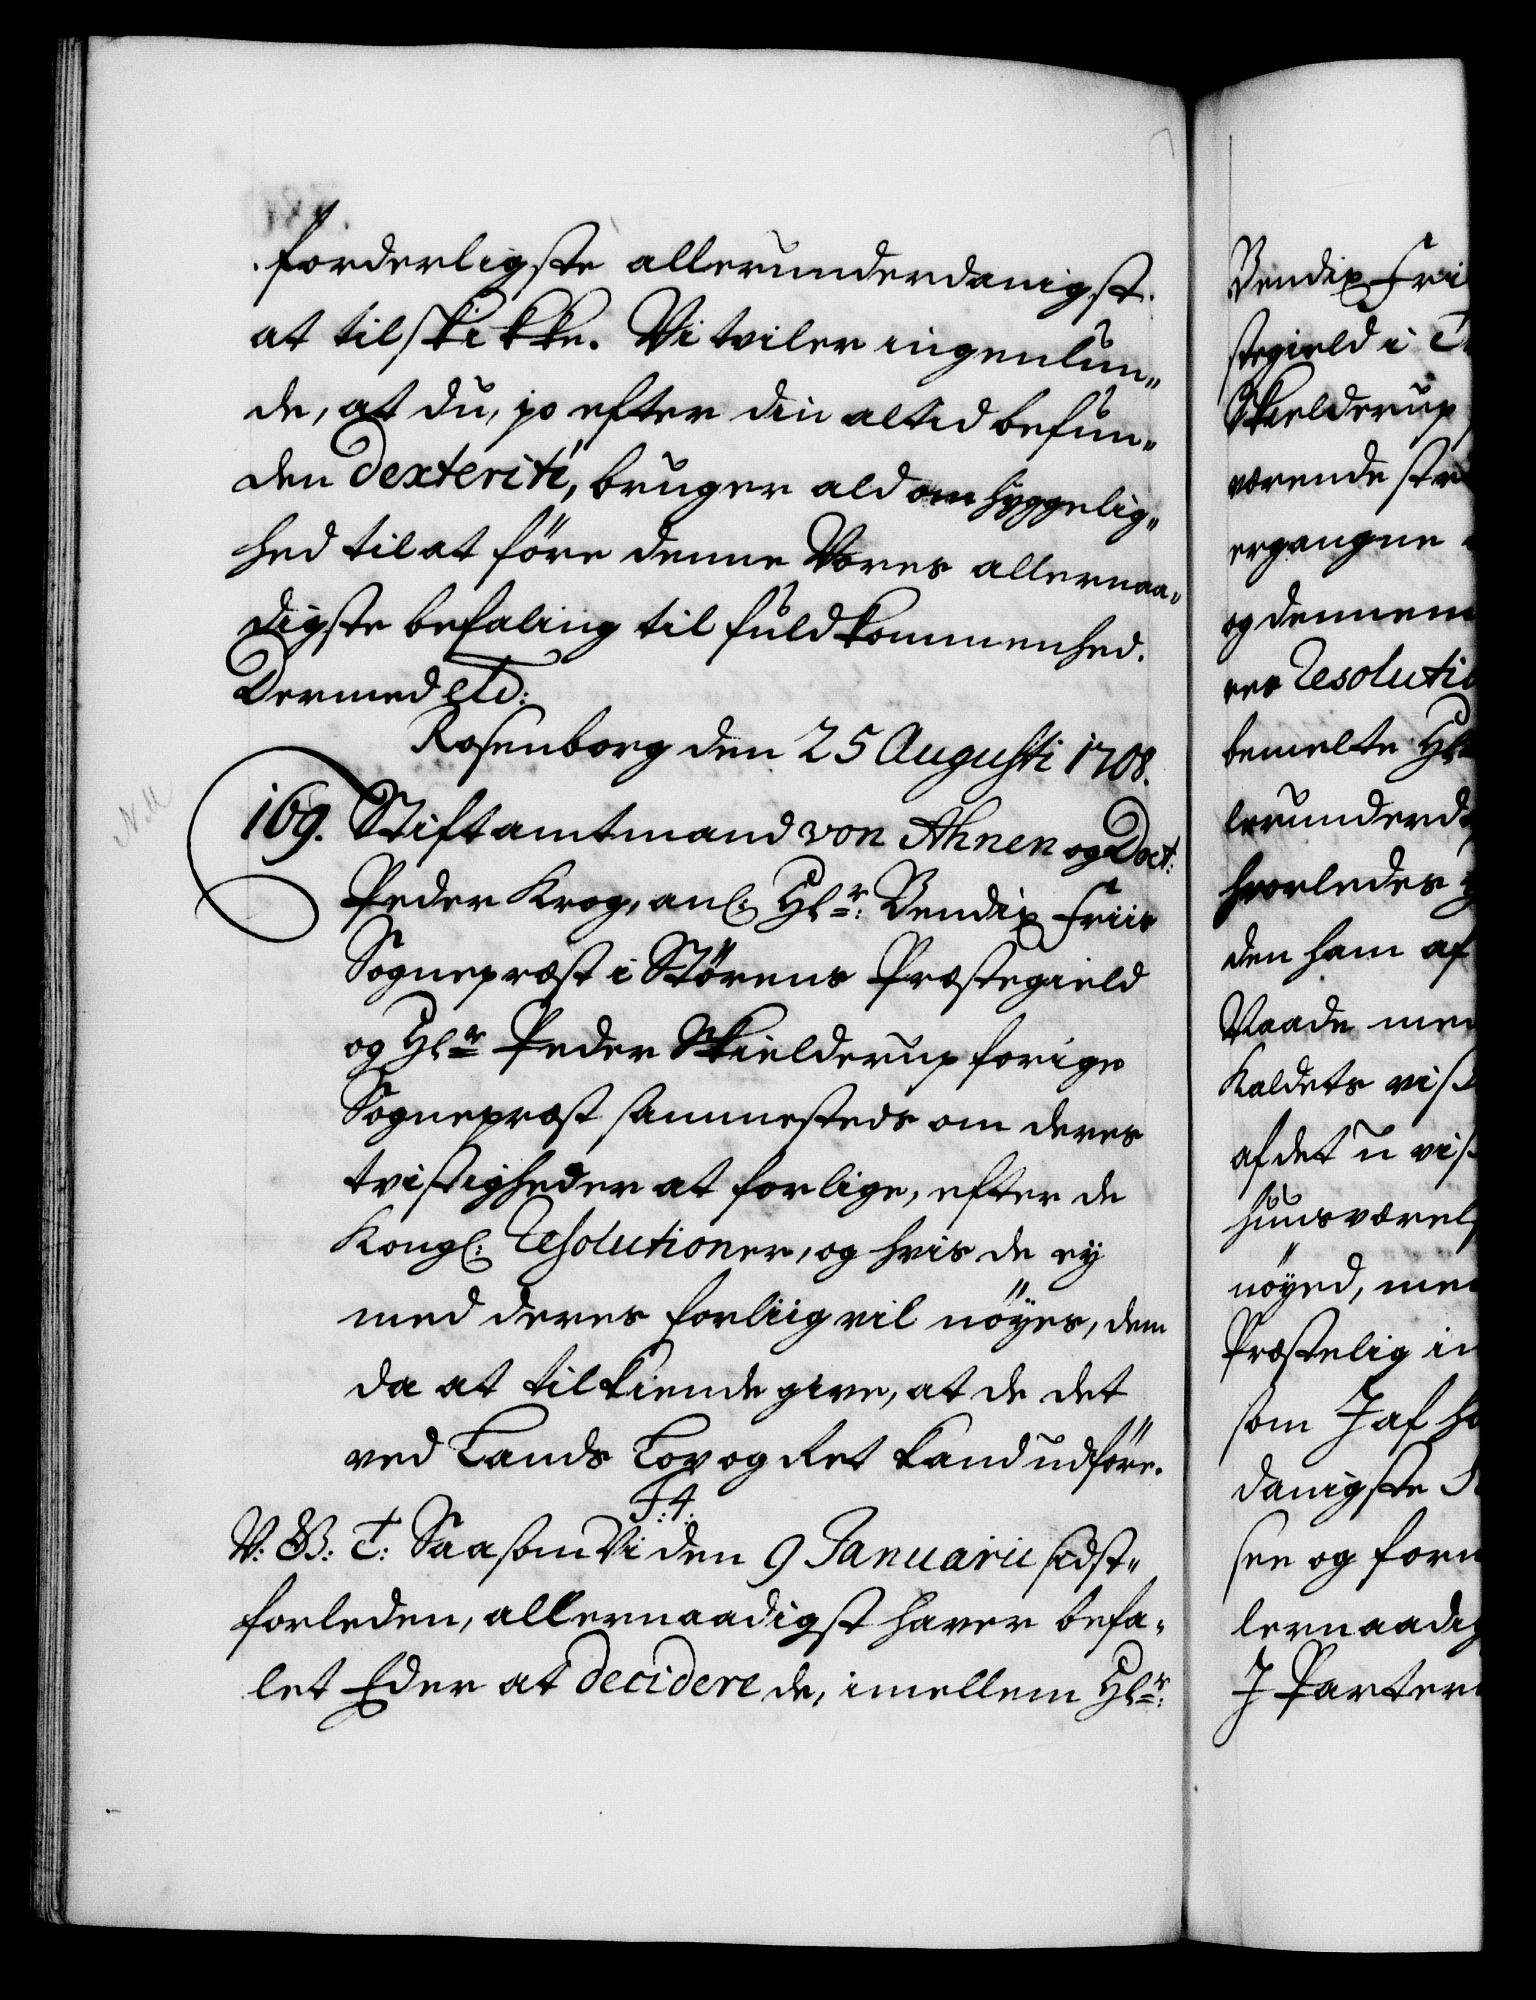 forderligste allerunderdanigst
at tilskikke. Vi tviler ingenlun„
de, at du, jo efter din altid befun„
den Dexterité, bruger ald omhyggelig„
hed til at före denne Vores allernaa„
digste befaling til fuldkommenhed.
Dermed etc:
Rosenborg den 25 Augusti 1708.
169. Stiftamtmand von Ahnen og Doct:
Peder Krog, anl: Hr: Bendix Friis
Sognepræst i Störens Præstegield
og Hr Peder Skielderup forige
Sognepræst sammesteds om deres
tvistigheder at forlige, efter de
Kongl: Resolutioner, og hvis de ey
med deres forliig vil nöyes, dem
da at tilkiende give, at de det
ved Lands Lov og Ret kand udföre.
F: 4:
V: G: T: Saasom Vi den 9 Januarii sidst„
forleden, allernaadigst haver befa„
let Eder at decidere de, imellem Hr:
Bendix Fri
stegield i
Skielderup
værende str
ergangne
og dennem
res Resoluti
bemelte Hr
lerunderd
hvorledes
den ham af
Naade med
Kaldets vis
af det u vis
huusværel
nöyed, men
Præstelig in
som I af h
danigste
see og for
lernaadig
I Parter